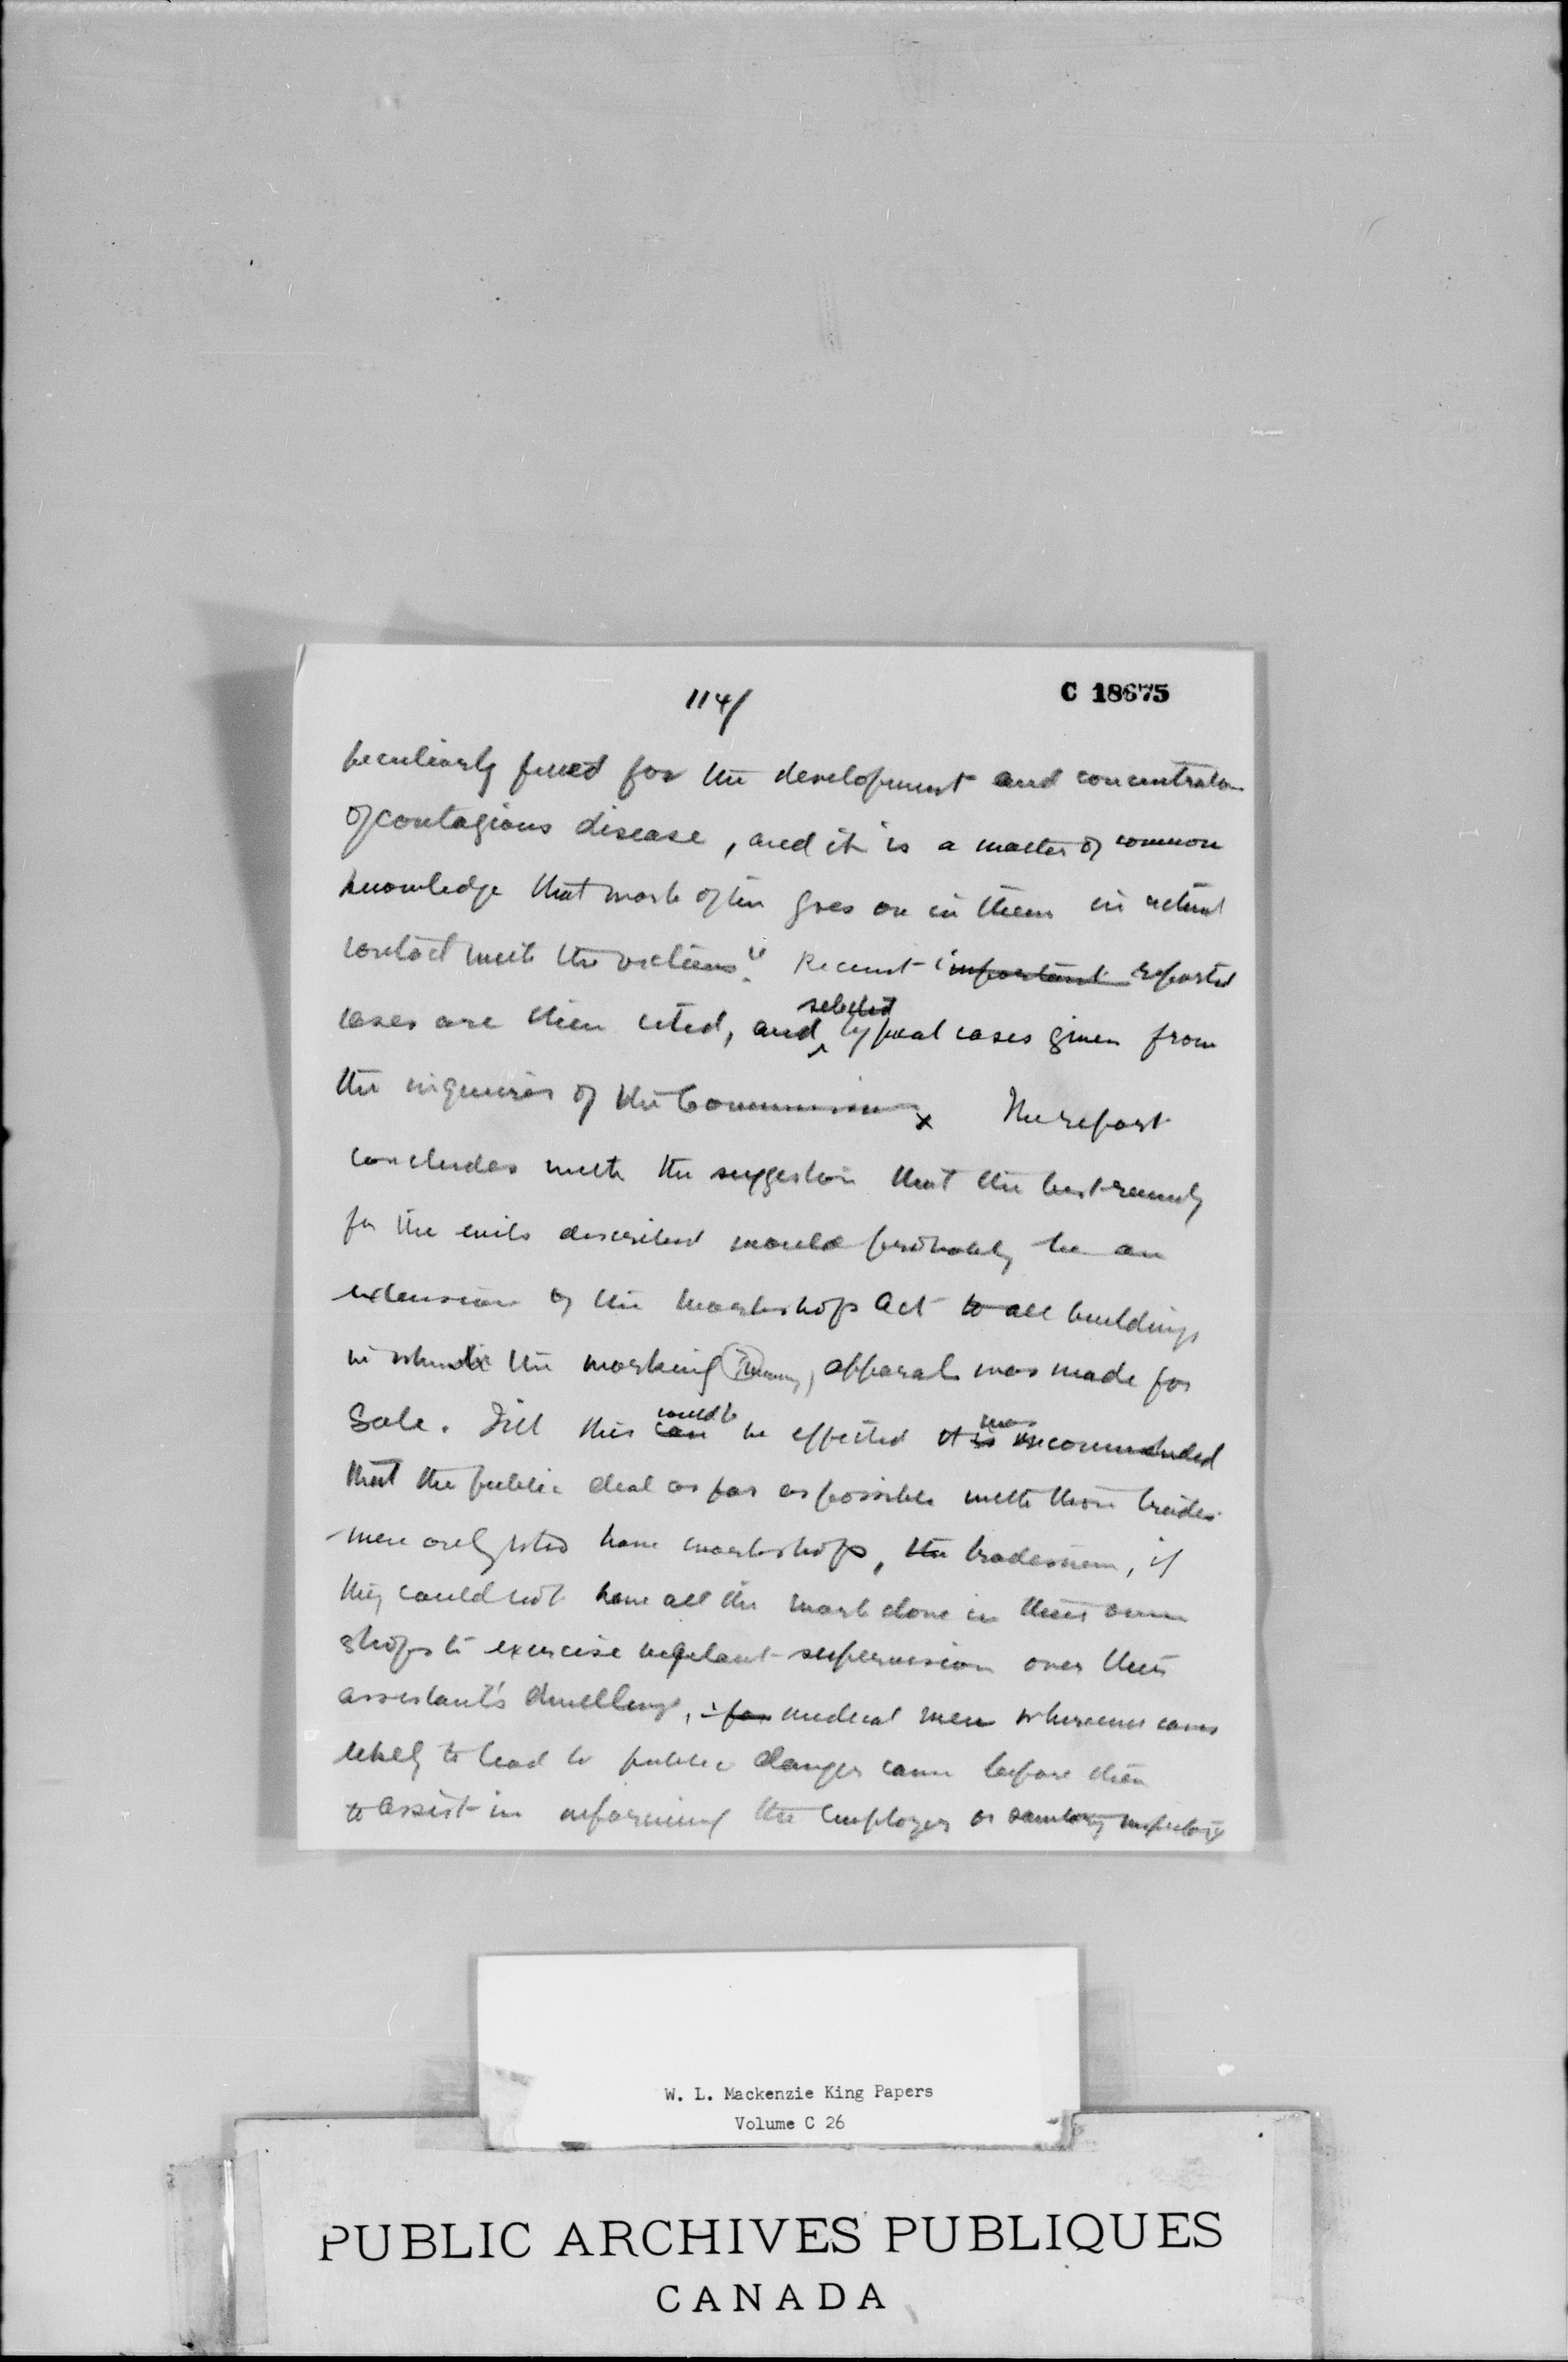 114/
C 18675
peculiarly fitted for the development and concentration
of contagious disease, and it is a matter of common
knowledge that work often goes on in them in actual
contact with the victims." Recent important reported
cases are then cited, and selected typical cases given from
the inquiries of the Commission x The report
concludes with the suggestion that the best remedy
for the evils described would probably be an
extension of the Workshops Act to all buildings
in which the working apparel was made for
Sale. Till this can could be effected it is was recommended
that the public deal as far as possible with those trades-
men only who have workshops, the tradesmen, if
they could not have all the work done in their own
shops to exercise vigilant supervision over their
assistant's dwellings, for medical men whenever cases
likely to lead to public danger came before them
to assist in informing the employer or sanitary inspectors
W. L. Mackenzie King Papers
Volume C 26
PUBLIC ARCHIVES PUBLIQUES
CANADA